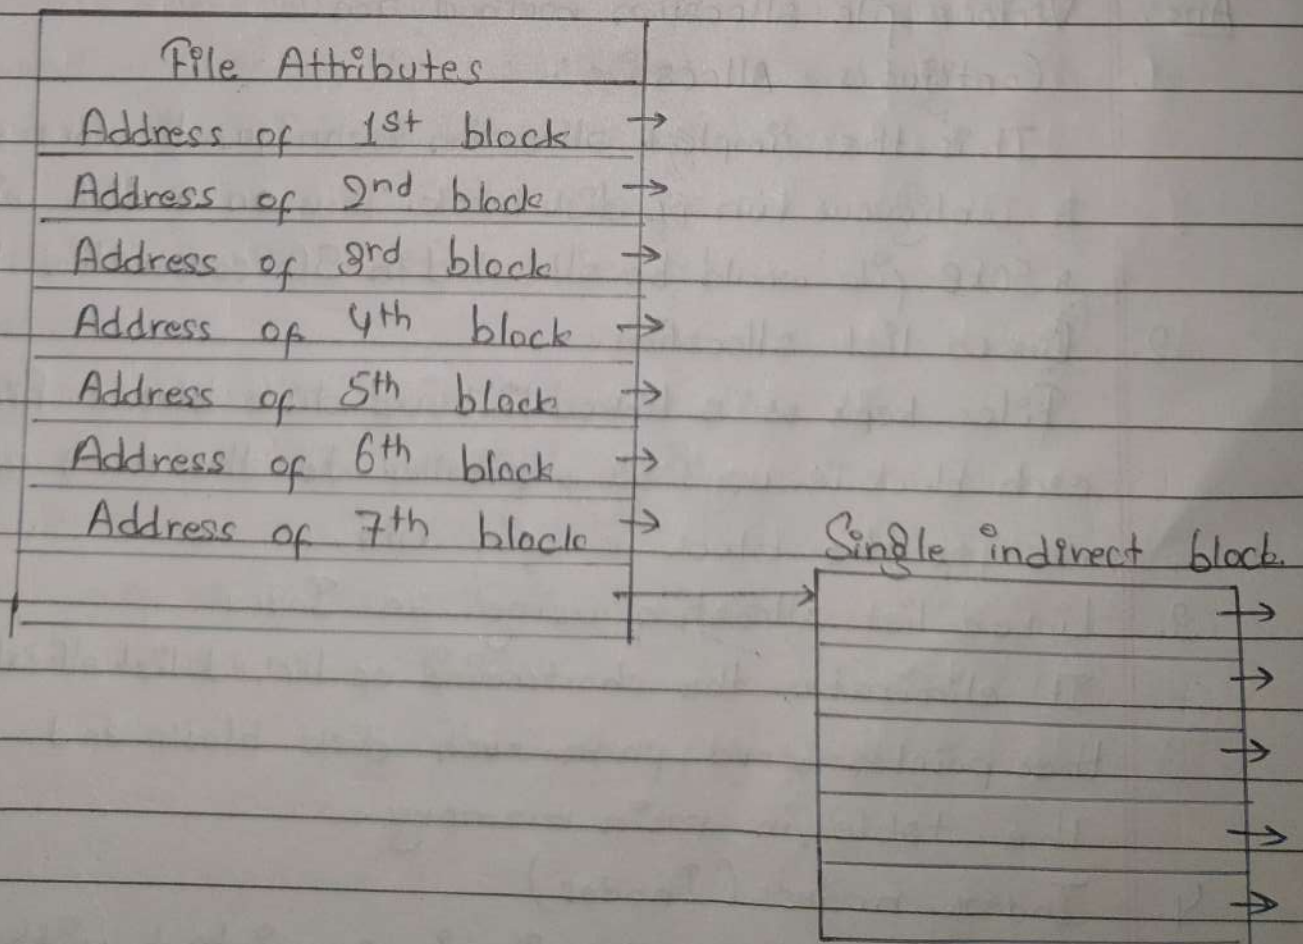 File Attributes
Address of 1st block
Address of 2nd block
Address of 3rd block
Address of 4th block
Address of 5th block
Address of 6th block
Address of 7th block
Single indirect block.